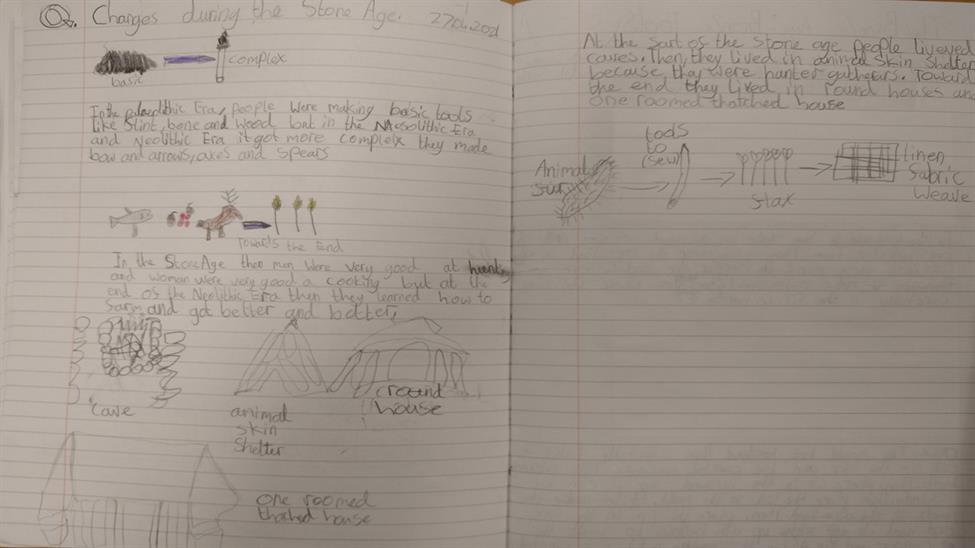 Q. Changes during the Stone Age.
basic
complex
In the Era, people were making basic tools
like flint, bone and wood but in the Mesolithic Era
and Neolithic Era it got more complex they made
bow and arrows, axes and spears
Towards the End
In the Stone Age then men were very good at
and woman were very good a cooking but at the
end of the Neolithic Era then they learned how to
farm and got better and better,
cave
animal
skin
shelter
round
house
One roomed
thached house
At the sart of the stone age people liveved
caves. Then, they lived in animal skin shelter
because they were hunter gathers. Toward
the end they lived in round houses and
one roomed thatched house
Animal
fur
tools
to
(sew)
flax
linen
fabric
weave